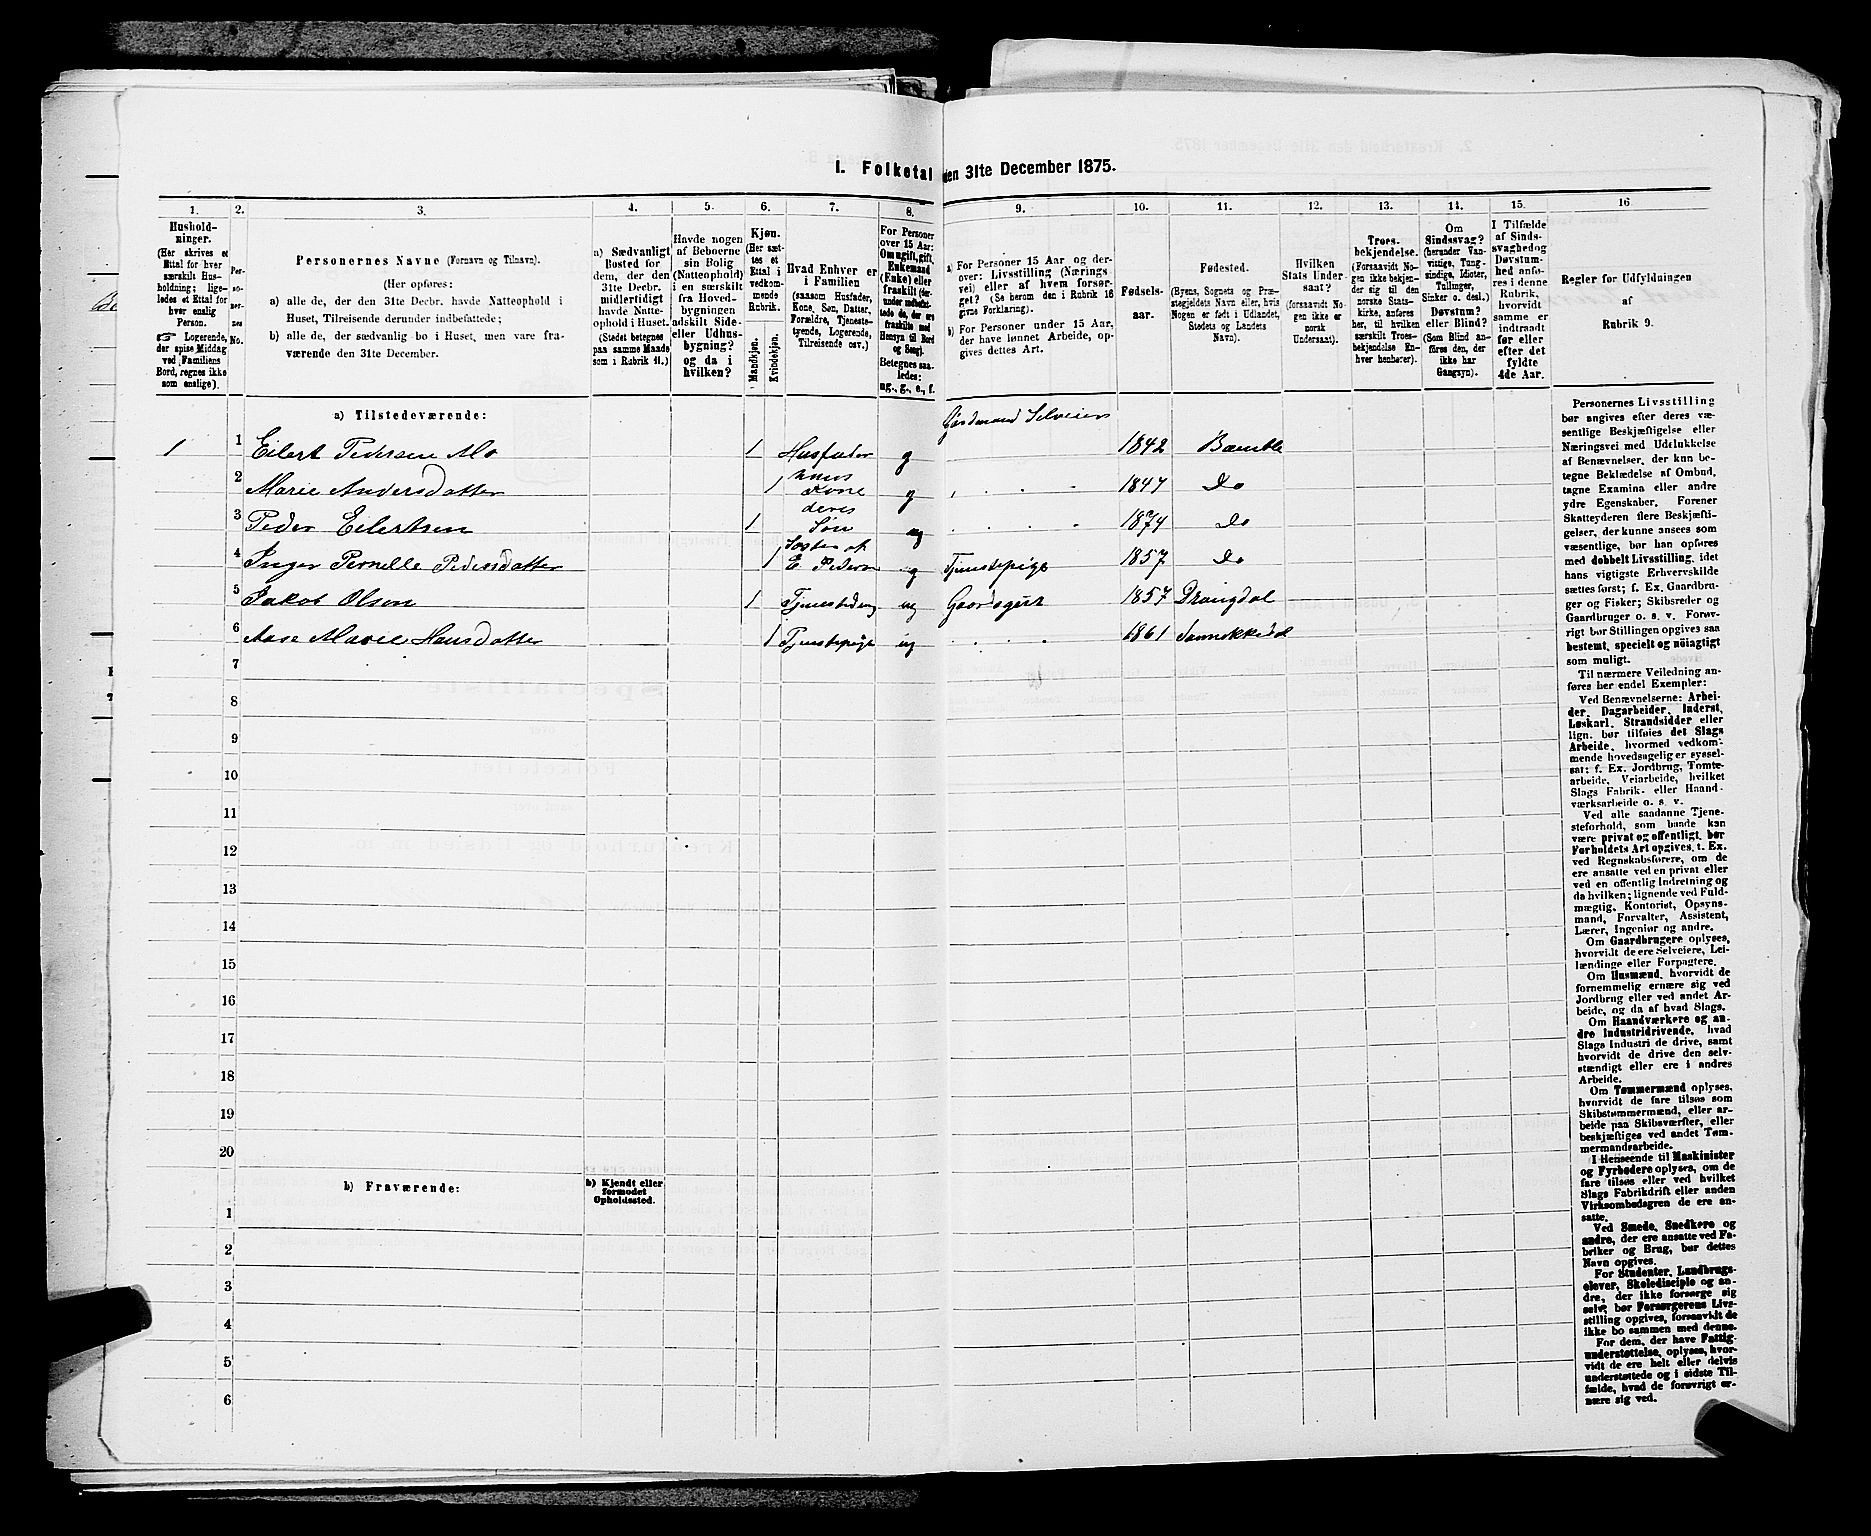 I. Folketal den 31te December 1875.
1. 2. 3. 4. 5. 6. 7. 8. 9. 10. 11. 12. 13. 14. 15. 16
Hushold-
ninger.
(Her skrives et
Ettal for hver
særskilt Hus-
holdning; lige-
ledes et Ettal for
hver enslig
Person.
☞ Logerende,
der spise Middag
ved Familiens
Bord, regnes ikke
som enslige).
Per-
so-
ner-
nes
No.
Personernes Navne (Fornavn og Tilnavn).
(Her opføres:
a) alle de, der den 31te Decbr. havde Natteophold i
Huset, Tilreisende derunder indbefattede;
b) alle de, der sædvanlig bo i Huset, men vare fra-
værende den 31te December.
a) Sædvanligt
Bosted for
dem, der den
31te Decbr.
midlertidigt
havde Natte-
ophold i Huset.
(Stedet betegnes
paa samme Maade
som i Rubrik 11.)
Havde nogen
af Beboerne
sin Bolig
(Natteophold)
i en særskilt
fra Hoved-
bygningen
adskilt Side-
eller Udhus-
bygning?
og da i
hvilken?
Kjøn.
(Her sæt-
tes et
Ettal i
vedkom-
mende
Rubrik.
Mandkjøn.
Kvindekjøn.
Hvad Enhver er
i Familien
(saasom Husfader,
Kone, Søn, Datter,
Forældre, Tjeneste-
tyende, Logerende,
Tilreisende osv.)
For Personer
over 15 Aar:
Om ugift, gift,
Enkemand
(Enke) eller
fraskilt (der-
under indbefat-
tede de, der ere
fraskilte med
Hensyn til Bord
og Seng).
Betegnes saa-
ledes:
ug., g., e., f.
a) For Personer 15 Aar og der-
over: Livsstilling (Nærings-
vei) eller af hvem forsør-
get? (Se herom den i Rubrik 16
givne Forklaring).
b) For Personer under 15 Aar,
der have lønnet Arbeide, op-
gives dettes Art.
Fødsels-
aar.
Fødested.
(Byens, Sognets og Præ-
stegjeldets Navn eller, hvis
Nogen er født i Udlandet,
Stedets og Landets
Navn).
Hvilken
Stats Under-
saat?
(forsaavidt No-
gen ikke er
norsk
Undersaat).
Troes-
bekjendelse.
(Forsaavidt No-
gen ikke bekjen-
der sig til den
norske Stats-
kirke, anføres
her, til hvilken
særskilt Troes-
bekjendelse En-
hver henhører).
Om
Sindssvag?
(herunder Van-
vittige, Tung-
sindige, Idioter,
Tullinger,
Sinker o. desl.)
Døvstum?
eller Blind?
(Som Blind an-
føres den, der
ikke har
Gangsyn).
I Tilfælde
af Sinds-
svaghed og
Døvstum-
hed anfø-
res i denne
Rubrik,
hvorvidt
samme er
indtraadt
før eller
efter det
fyldte
4de Aar.
Regler for Udfyldningen
af
Rubrik 9.
a) Tilstedeværende:
Gårdmand Selveier
1 1 Eilert Pedersen Mo 1 Husfader g 1842 Bamble
2 Marie Andersdatter 1 hans Kone g 1847 Do
3 Peder Eilertsen 1 deres Søn ug 1874 Do
4 Inger Pernelle Pedersdatter 1 Søster af E. Peders. ug Tjenstepige 1857 Do
5 Jakob Olsen 1 ug Gaardsgut 1857 Drangdal
6 Aase Marie Hansdatter 1 Tjenstepige ug 1861
7
8
9
10
11
12
13
14
15
16
17
18
19
20
b) Fraværende:
b) Kjendt eller
formodet
Opholdssted.
1
2
3
4
5
6
Personernes Livsstilling
bør angives efter deres væ-
sentlige Beskjæftigelse eller
Næringsvei med Udelukkelse
af Benævnelser, der kun be-
tegne Beklædelse af Ombud,
tagne Examina eller andre
ydre Egenskaber. Forener
Skatteyderen flere Beskjæfti-
gelser, der kunne ansees som
væsentlige, bør han opføres
med dobbelt Livsstilling, idet
hans vigtigste Erhvervskilde
sættes først; f. Ex. Gaardbru-
ger og Fisker; Skibsreder og
Gaardbruger o. s. v. Forøv-
rigt bør Stillingen opgives saa
bestemt, specielt og nöiagtigt
som muligt.
Til nærmere Veiledning an-
føres her endel Exempler:
Ved Benævnelserne: Arbei-
der, Dagarbeider, Inderst,
Løskarl, Strandsidder eller
lign. bør tilføies det Slags
Arbeide, hvormed vedkom-
mende hovedsagelig er syssel-
sat; f. Ex. Jordbrug, Tomte-
arbeide, Veiarbeide, hvilket
Slags Fabrik- eller Haand-
værksarbeide o. s. v.
Ved alle saadanne Tjene-
steforhold, som baade kan
være privat og offentligt, bør
Forholdets Art opgives, t. Ex.
ved Regnskabsførere, om de
ere ansatte ved en privat eller
ved en offentlig Indretning og
da hvilken; lignende ved Fuld-
mægtig, Kontorist, Opsyns-
mand, Forvalter, Assistent,
Lærer, Ingeniør og andre.
Om Gaardbrugere oplyses,
hvorvidt de ere Selveiere, Lei-
lændinge eller Forpagtere.
Om Husmænd, hvorvidt de
fornemmelig ernære sig ved
Jordbrug eller ved andet Ar-
beide, og da af hvad Slags.
Om Haandværkere og an-
dre Industridrivende, hvad
Slags Industri de drive, samt
hvorvidt de drive den selv-
stændigt eller ere i andres
Arbeide.
Om Tømmermænd oplyses,
hvorvidt de fare tilsøs som
Skibstømmermænd, eller ar-
beide paa Skibsværfter, eller
beskjæftiges ved andet Tøm-
mermandsarbeide.
I Henseende til Maskinister
og Fyrbødere oplyses, om de
fare tilsøs eller ved hvilket
Slags Fabrikdrift eller anden
Virksombedsgren de ere an-
satte.
Ved Smede, Snedkere og
andre, der ere ansatte ved Fa-
briker og Brug, bør dettes
Navn opgives.
For Studenter, Landbrugs-
elever, Skoledisciple og an-
dre, der ikke forsørge sig
selv, bør Forsørgerens Livs-
stilling opgives, forsaavidt de
ikke bo sammen med denne.
For dem, der have Fattig-
understøttelse, oplyses, hvor-
vidt de ere helt eller delvis
understøttede og i sidste Til-
fælde, hvad de forøvrigt er-
nære sig ved.